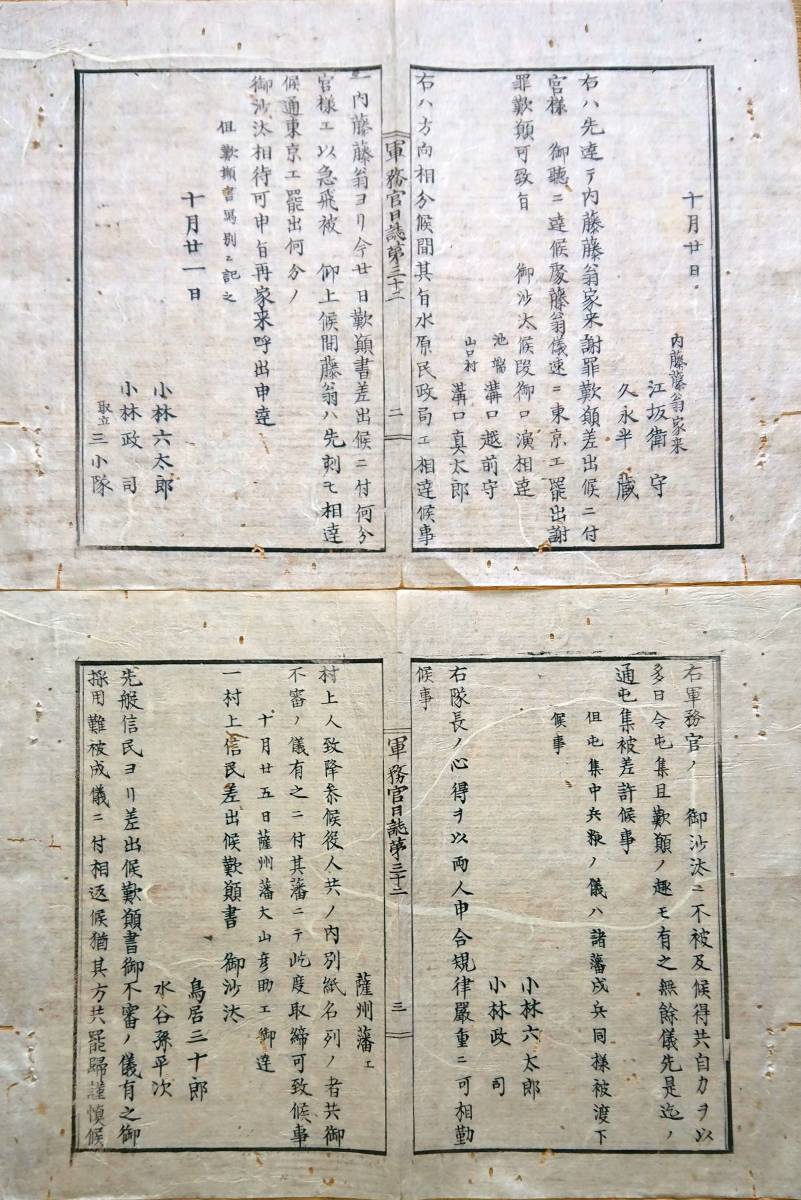 十月廿日
内藤藤翁家来
江坂衛守
久永半蔵
右ハ先達テ内藤藤翁家来謝罪歎願差出候ニ付
官様 御聴ニ達候處藤翁儀速ニ東京エ罷出謝
罪歎願可致旨 御沙汰候段御口演相達
池端 溝口越前守
山口村 溝口真太郎
右ハ方向相分候間其旨水原民政局エ相達候事
軍務官日誌第三十二
二
一内藤藤翁ヨリ今廿日歎願書差出候ニ付何分
官様エ以急飛被 仰上候間藤翁ハ先刻モ相達
候通東京エ罷出何分ノ
御沙汰相待可申旨再家来呼出申達
但歎願書写別ニ記之
十月廿一日
小林六太郎
小林政司
取立三小隊
右軍務官ノ 御沙汰ニ不被及候得共自力ヲ以
多日令屯集且歎願ノ趣モ有之無餘儀先是迄ノ
通屯集被差許候事
但屯集中兵粮ノ儀ハ諸藩戍兵同様被渡下
候事
小林六太郎
小林政司
右隊長ノ心得ヲ以両人申合規律嚴重ニ可相勤
候事
軍務官日誌第三十二
三
薩州藩エ
村上人致降参候役人共ノ内別紙名列ノ者共御
不審ノ儀有之ニ付其藩ニテ屹度取締可致候事
十月廿五日薩州藩大山彦助エ御達
一村上信民差出候歎願書 御沙汰
鳥居三十郎
水谷孫平次
先般信民ヨリ差出候歎願書御不審ノ儀有之御
採用難被成儀ニ付相返候猶其方共罷歸謹慎候